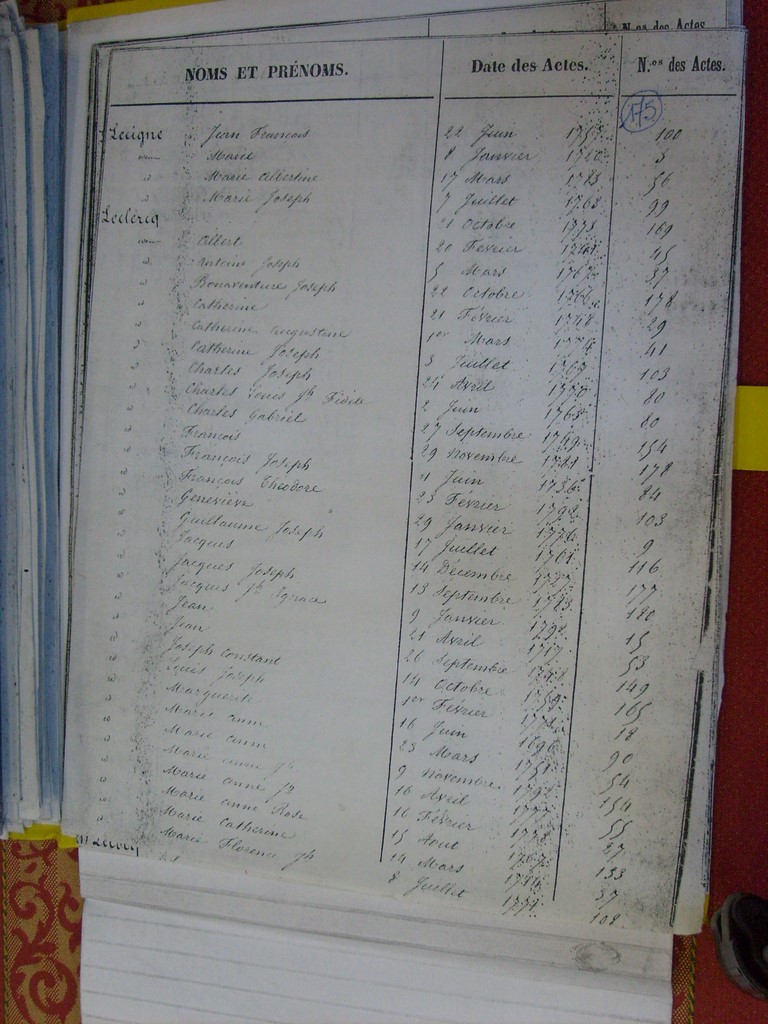 N.os des Actes
NOMS ET PRÉNOMS. Date des Actes. N.os des Actes.
175
Lecigne Jean François 22 Juin 100
Marie 8 Janvier 3
Marie Albertine 17 Mars 1783 56
Marie Joseph 7 Juillet 1768 99
Leclercq 21 Octobre 1773 169
Albert 20 Février 45
Antoine Joseph 5 Mars 1762 37
Bonaventure Joseph 22 Octobre 1766 178
Catherine 21 Février 1748 29
Catherine Augustine 1er Mars 1774 41
Catherine Joseph 3 Juillet 1767 103
Charles Joseph 24 Avril 1770 80
Charles Louis Jh Fidele 2 Juin 1765 80
Charles Gabriel 27 Septembre 1749 154
François 29 Novembre 1781 178
François Joseph 11 Juin 1736 84
François Theodore 23 Février 1792 103
Geneviève 29 Janvier 1776 9
Guillaume Joseph 17 Juillet 1761 116
Jacques 14 Décembre 1727 177
Jacques Joseph 13 Septembre 1783 120
Jacques Jh Ignace 9 Janvier 1792 15
Jean 21 Avril 1717 53
Jean 26 Septembre 1748 149
Joseph Constant 14 Octobre 1759 165
Louis Joseph 1er Février 1773 18
Marguerite 16 Juin 1696 90
Marie Anne 23 Mars 1751 54
Marie Anne 9 Novembre 1792 154
Marie Anne Jh 16 Avril 1777 55
Marie Anne Jh 16 Février 1778 27
Marie Anne Rose 15 Aout 1767 133
Marie Catherine 14 Mars 1744 37
Marie Florence Jh 8 Juillet 1771 108